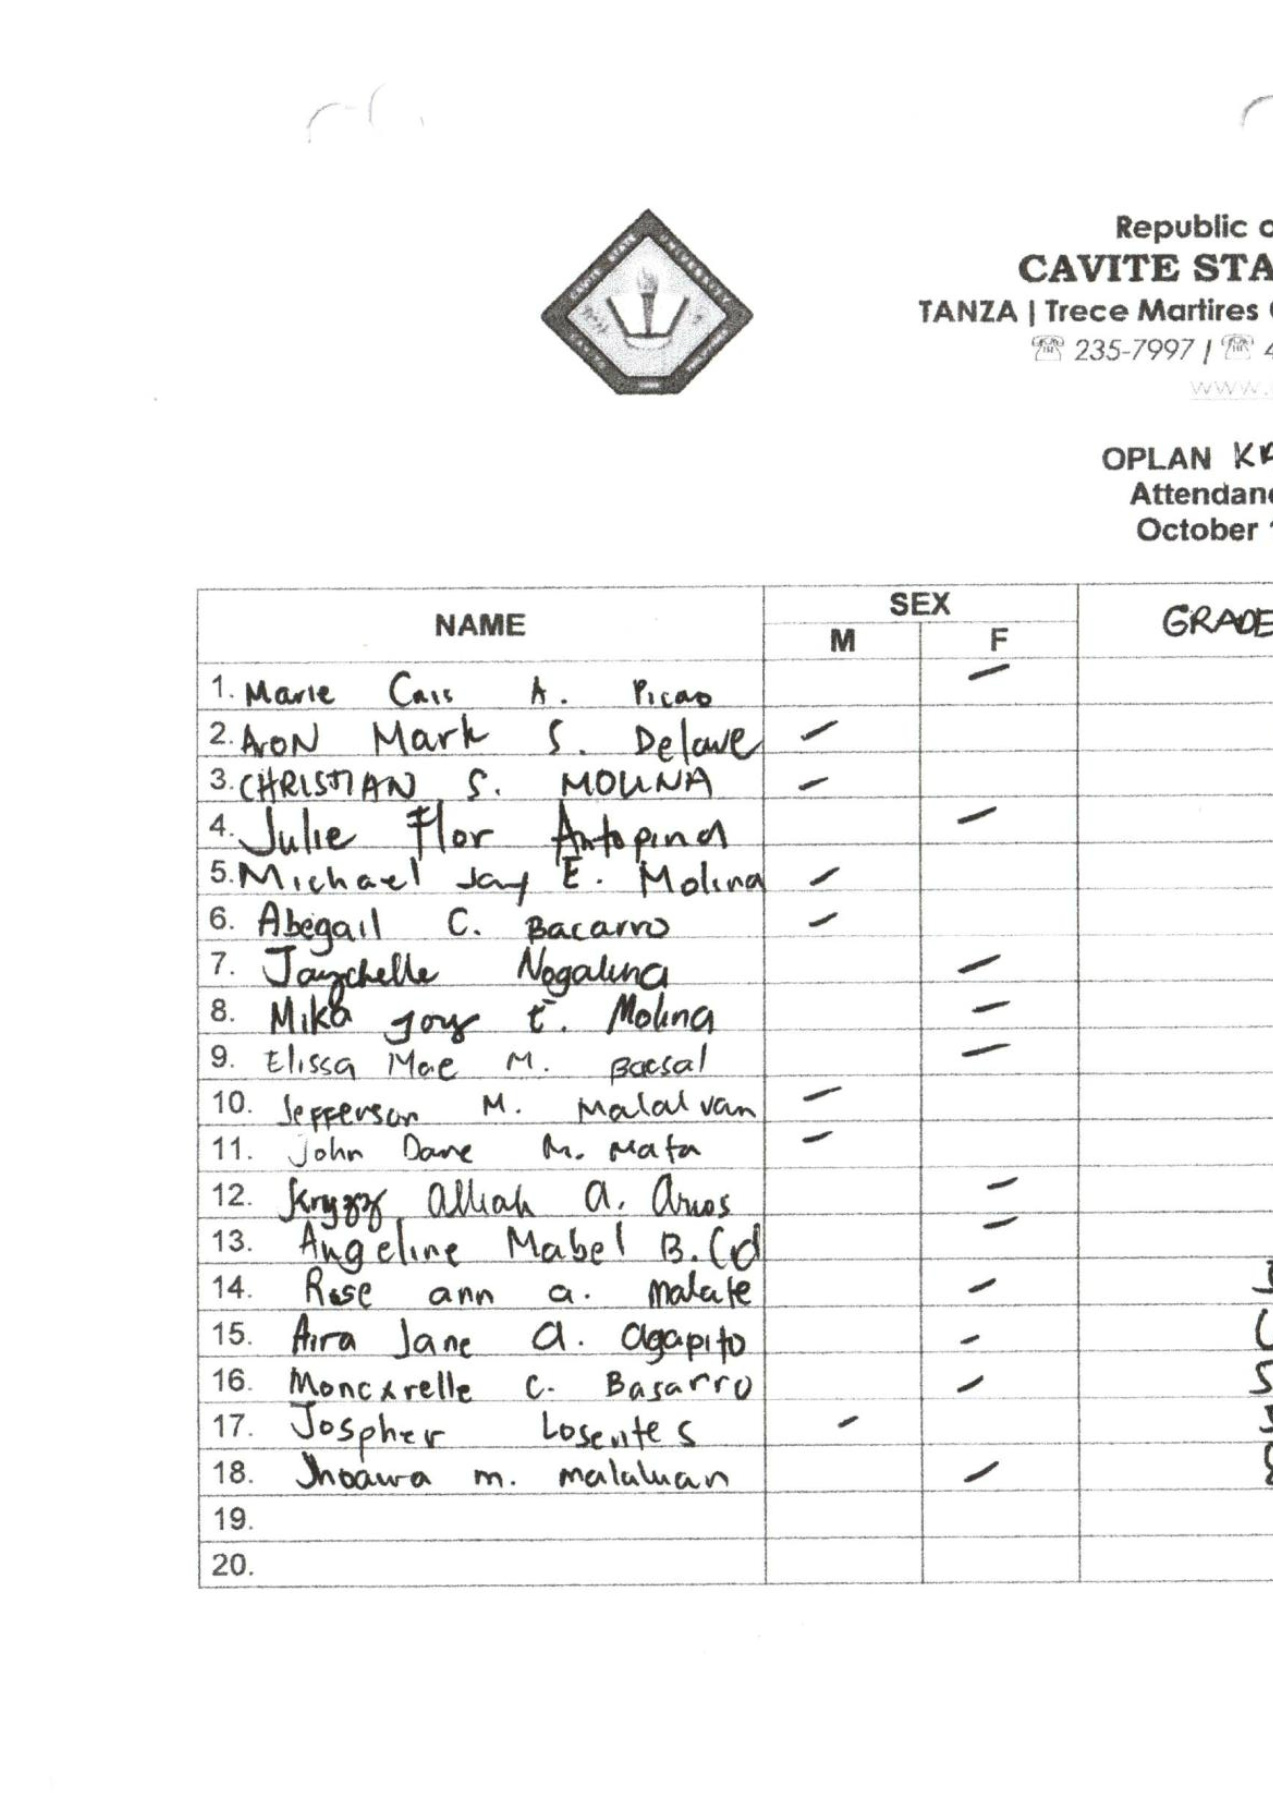 CAVITE STATE UNIVERSITY
CAVITE
Republic o
CAVITE STA
TANZA | Trece Martires
235-7997 /
www.
OPLAN KA
Attendanc
October
NAME SEX GRADE
M F
1. Marie Cais A. Picao
2. Aron Mark S. Delawe
3. CHRISTIAN S. MOLINA
4. Julie Flor Antopina
5. Michael Jay E. Molina
6. Abegail C. Bacarro
7. Jaychelle Nogalina
8. Mika joy E. Molina
9. Elissa Mae M. Bacsal
10. Jefferson M. Malalvan
11. John Dave M. Mata
12. Kryzz Alliah A. Arios
13. Angeline Mabel B. Cid
14. Rose ann a. malate
15. Aira Jane A. agapito
16. Moncxrelle C. Basarro
17. Jospher Losentes
18. m. malaluan
19.
20.